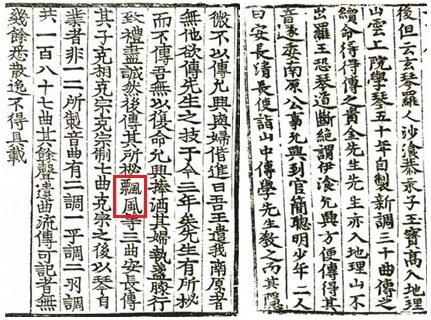 後但云玄琴羅人沙飡恭永子玉寶高入地理
山雲上院學琴五十年自製新調三十曲傳之
續命得得傳之貴金先生先生亦入地理山不
出羅王恐琴道斷絶謂伊飡允興方便傳得其
音遂委南原公事允興到官簡聰明少年二人
曰安長清長使詣山中傳學先生教之而其隱
微不以傳允興與婦偕進曰吾王遣我南原者
無他欲傳先生之技于今三年矣先生有所秘
而不傳吾無以復命允興捧酒其婦執盞膝行
致禮盡誠然後傳其所秘飄風等三曲安長傳
其子克相克宗克宗制七曲克宗之後以琴自
業者非一二所製音曲有二調一平調二羽調
共一百八十七曲其餘聲遺曲流傳可記者無
幾餘悉散逸不得具載